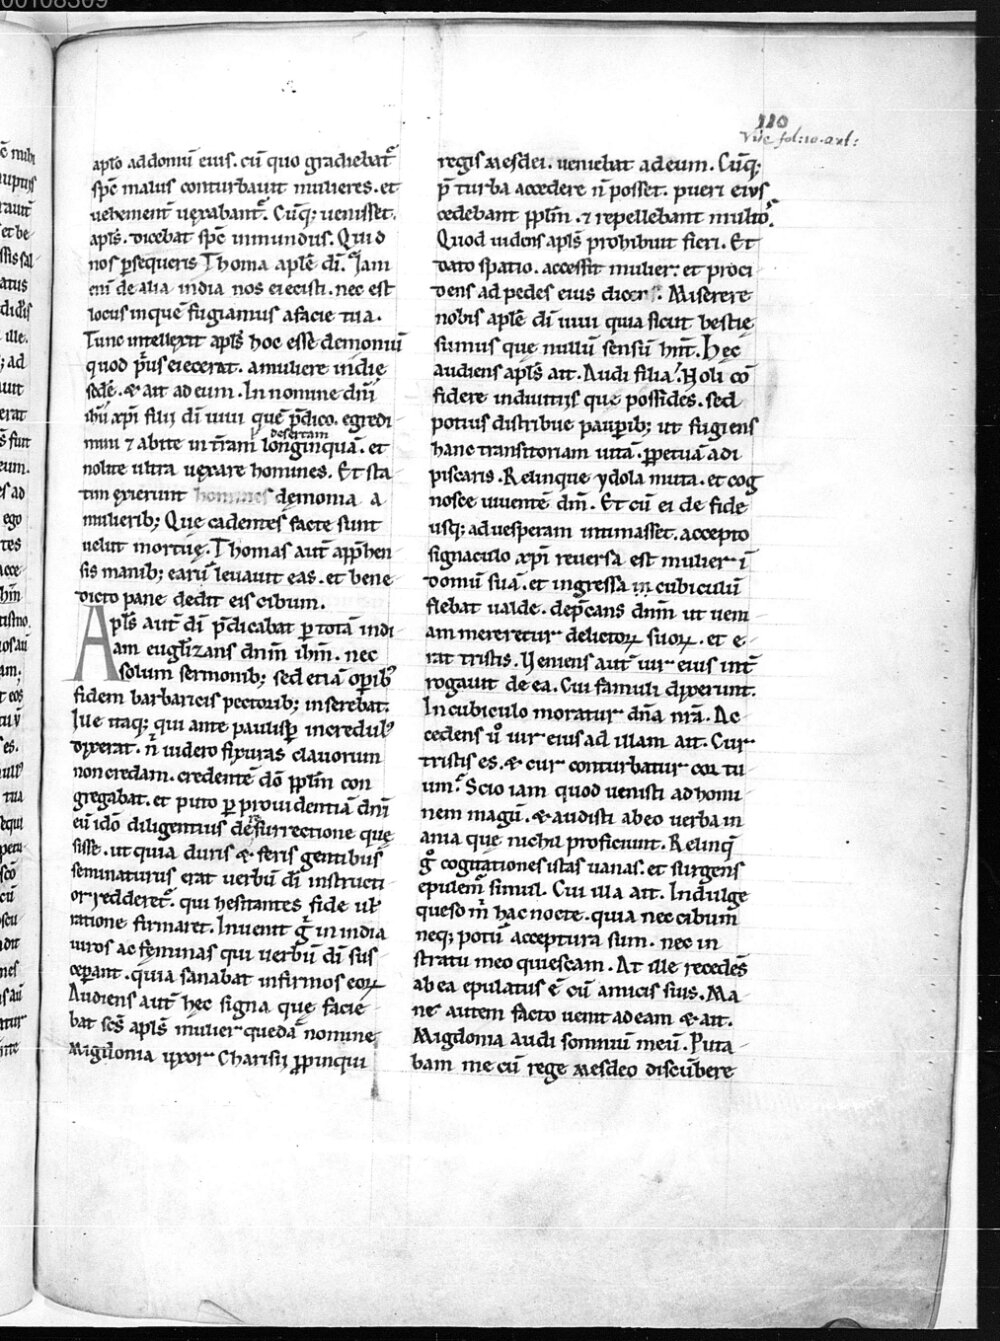 00108309
110
Vite fol: 10. ant:
apło ad domū eius. cū quo gradiebat᷑
spc̄ malus conturbauit mulieres. et
uehement̄ uexabant᷑. Cūq; uenisset.
apl̄s. dicebat spc̄ inmundus. Quid
nos ꝑsequeris Thoma aplē dī. Iam
eni᷑ de alia india nos eiecisti. nec est
locus in quē fugiamus a facie tua.
Tunc intellexit apl̄s hoc esse demoniū
quod p̄us eiecerat. a muliere in die
sedē. & ait ad eum. In nomine dn̄i
ih̄u xp̄i filii dī uiui quē p̄dico. egredi
mini ⁊ abite in t̄ram desertam longinquā. et
nolite ultra uexare homines. Et sta
tim exierunt homines demonia a
mulierib; Que cadentes facte sunt
uelut mortuę. Thomas aut̄ app̄hen
sis manib; earū leuauit eas. et bene
dicto pane dedit eis cibum.
Apl̄s aut̄ dī p̄dicabat ꝑ totā indi
am euglizans dn̄m ih̄m. nec
solum sermonib; sed etiā oꝑib᷒
fidem barbaricis pectorib; inserebat.
Iue itaq; qui ante paulisꝑ incredul᷒
dixerat. n̄ uidero fixuras clauorum
non credam. credentē dō ꝓplm̄ con
gregabat. et puto ꝑ prouidentiā dn̄i
eū idō diligentius de resurrectione que
sisse. ut quia duris & feris gentibus
seminaturus erat uerbū dī instructi
or redderet᷑. qui hesitantes fide ut̄
ratione firmaret. Inuenit g̊ in india
uiros ac feminas qui uerbū dī sus
ceꝑant. quia sanabat infirmos eoꝝ
Audiens aut̄ hec signa que facie
bat sc̄s apl̄s mulier quedā nomine
Migdonia uxor Charisii ꝓpinqui
regis mesdei. ueniebat ad eum. Cūq;
p̄ turba accedere n̄ posset. pueri eius
cedebant ꝓplm̄. ⁊ repellebant multos.
Quod uidens apl̄s prohibuit fieri. Et
dato spatio. accessit mulier. et proci
dens ad pedes eius dicens. Miserere
nobis aplē dī uiui quia sicut bestię
sumus que nullū sensū hn̄t. Hęc
audiens apl̄s ait. Audi filia. Noli cō
fidere in diuitiis que possides. sed
potius distribue pauꝑib; ut fugiens
hanc transitoriam uitā. ꝑpetuā adi
piscaris. Relinque ydola muta. et cog
nosce uiuentē dm̄. Et cū ei de fide
usq; ad uesperam intimasset. accepto
signaculo xp̄i reuersa est mulier ī
domū suā. et ingressa in cubiculū
flebat ualde. dep̄cans dn̄m ut ueni
am mereretur delictoꝝ suoꝝ. et e
rat tristis. Veniens aut̄ uir eius int̄
rogauit de ea. Cui famuli dixerunt.
In cubiculo moratur dn̄a nr̄a. Ac
cedens ū uir eius ad illam ait. Cur
tristis es. & cur conturbatur cor tu
um. Scio iam quod uenisti ad homi
nem magū. & audisti ab eo uerba in
ania que nichil proficiunt. Relinq̄
g̊ cogitationes istas uanas. et surgens
epulem᷑ simul. Cui illa ait. Indulge
queso m̄ hac nocte. quia nec cibum
neq; potū acceptura sum. nec in
stratu meo quiescam. At ille recedēs
ab ea epulatus ē cū amicis suis. Ma
ne autem facto uenit ad eam & ait.
Migdonia audi somniū meū. Puta
bam me cū rege mesdeo discūbere